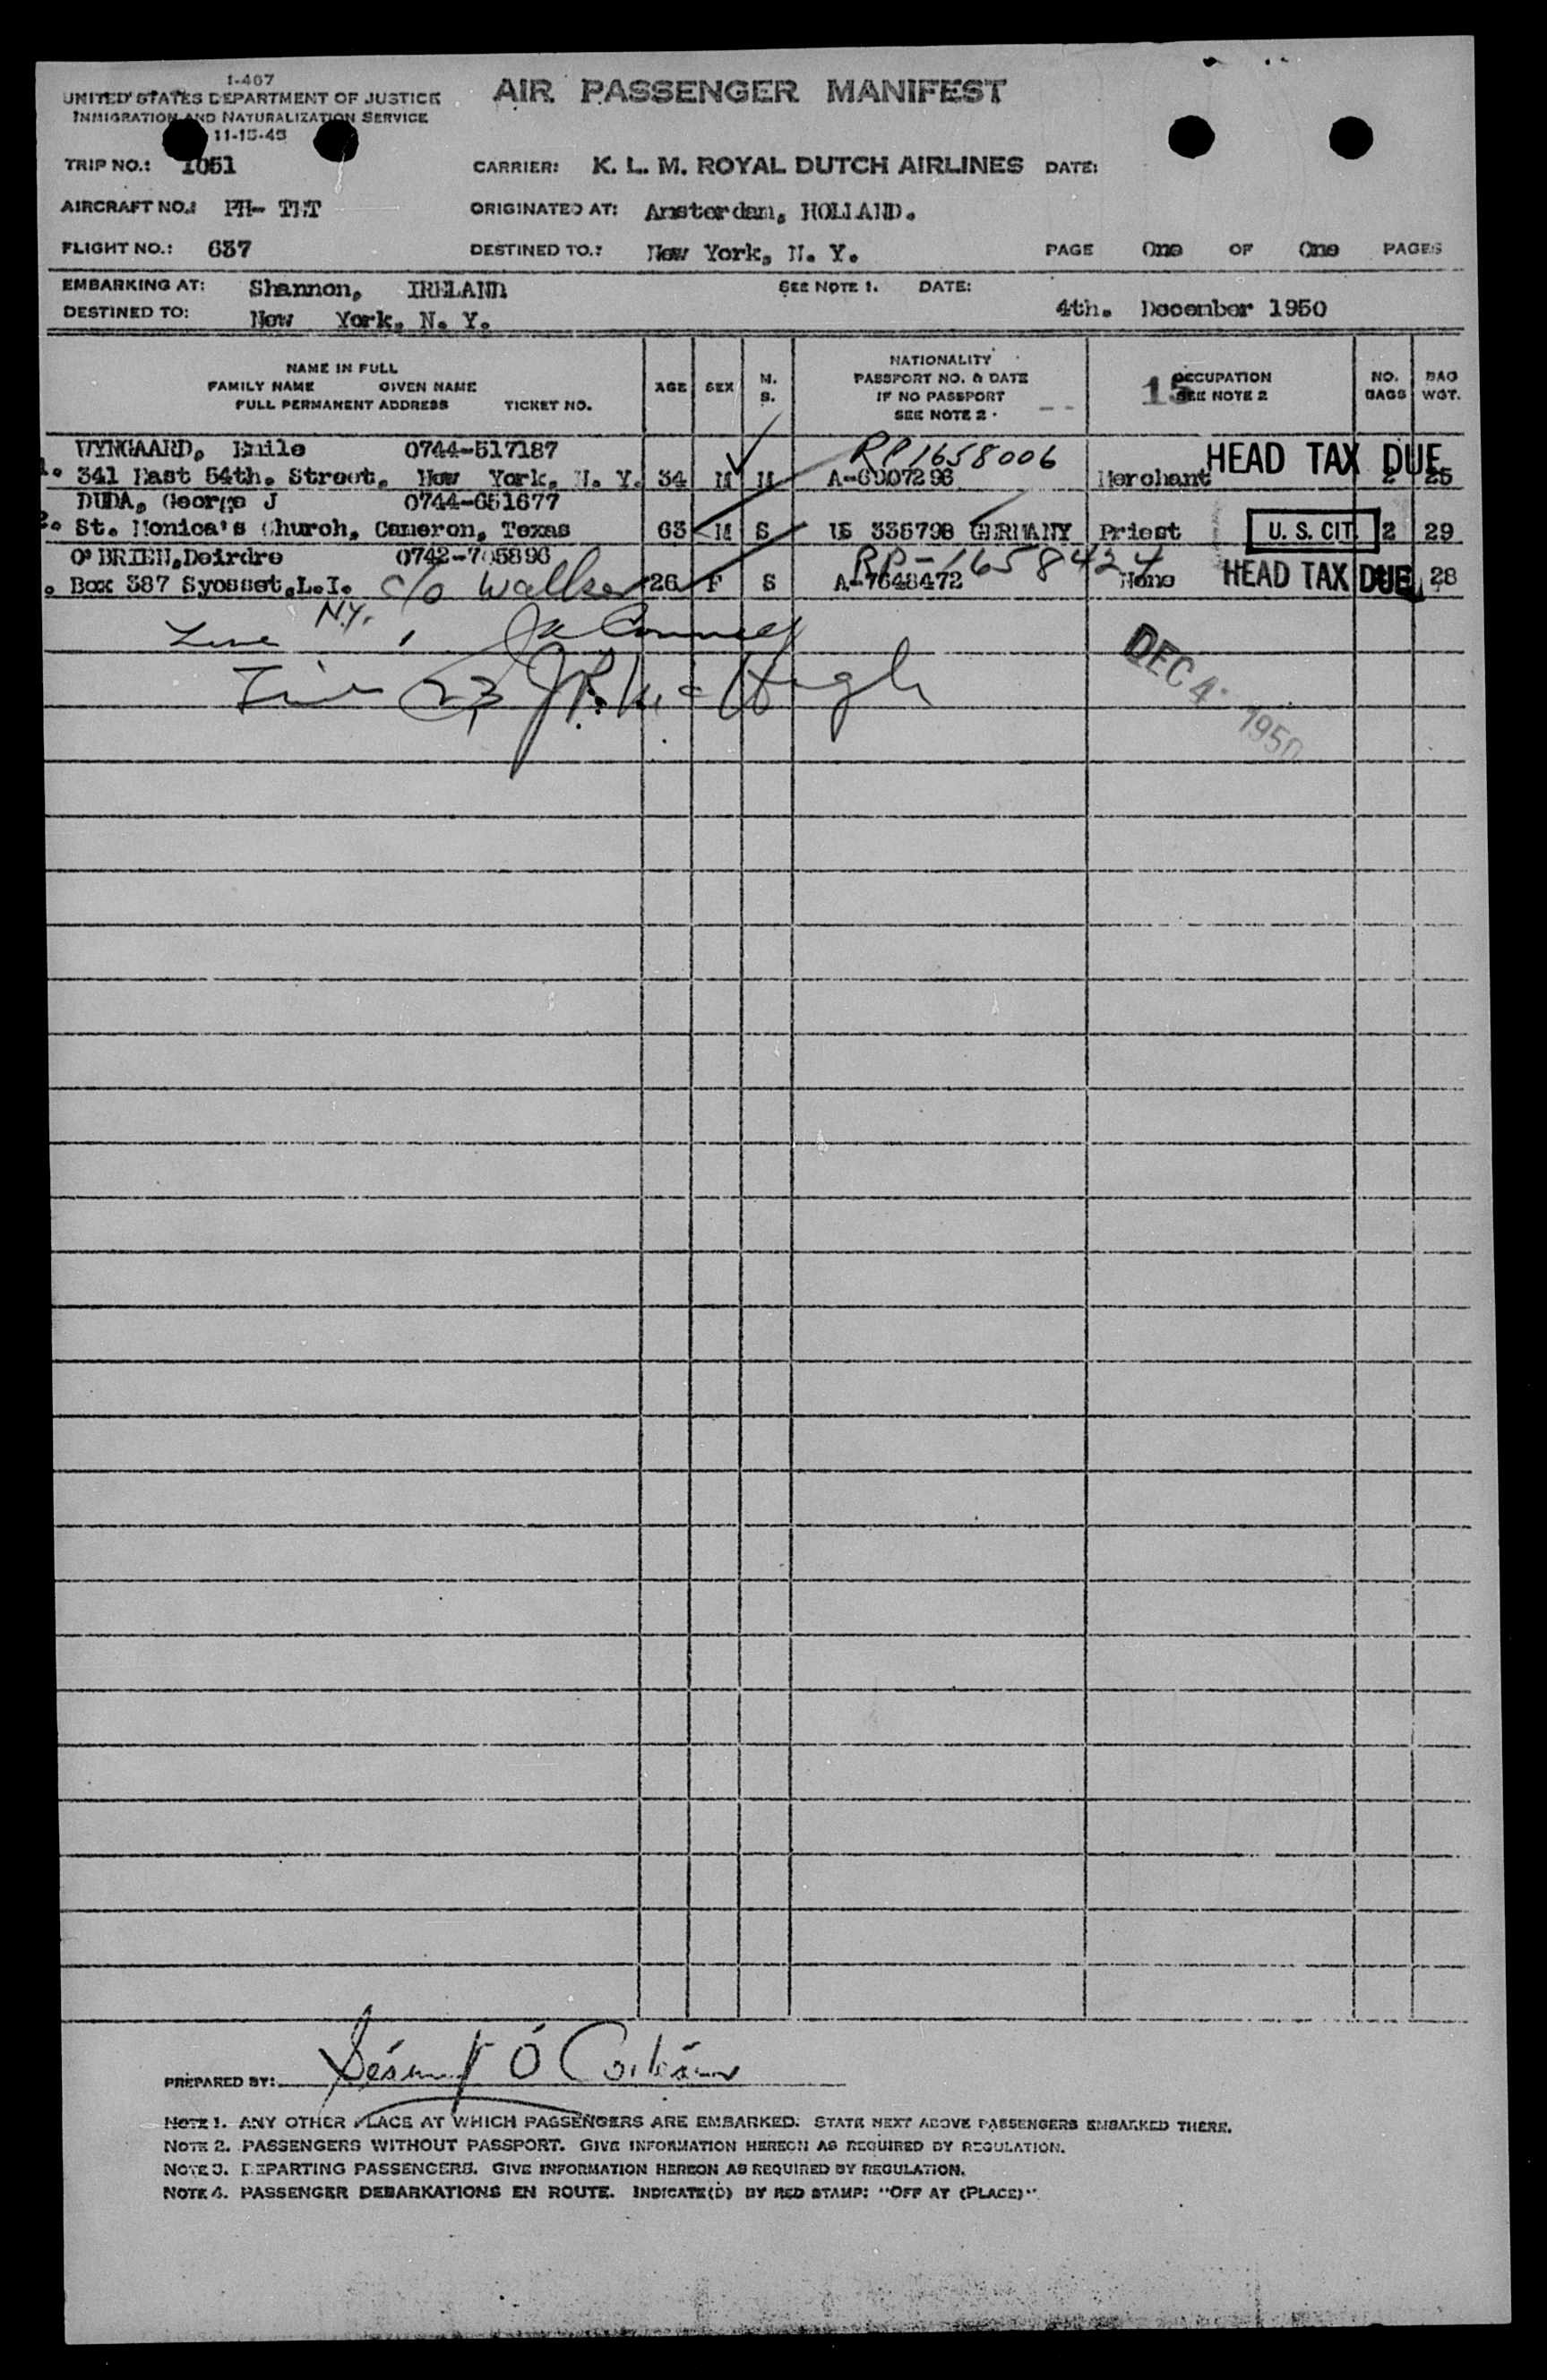 I-407
UNITED STATES DEPARTMENT OF JUSTICE
IMMIGRATION AND NATURALIZATION SERVICE
11-15-45
AIR PASSENGER MANIFEST
TRIP NO.: 1051 CARRIER: K. L. M. ROYAL DUTCH AIRLINES DATE:
AIRCRAFT NO.: PH- ORIGINATED AT: Amsterdam, HOLLAND.
FLIGHT NO.: 637 DESTINED TO.: New York, N. Y. PAGE One OF One PAGES
EMBARKING AT: Shannon, IRELAND SEE NOTE 1. DATE: 4th. December 1950
DESTINED TO: New York, N. Y.
NAME IN FULL
FAMILY NAME GIVEN NAME
FULL PERMANENT ADDRESS TICKET NO.
AGE SEX M. S.
NATIONALITY
PASSPORT NO. & DATE
IF NO PASSPORT
SEE NOTE 2
15 OCCUPATION
SEE NOTE 2
NO. BAGS
BAG WGT.
WYNGAARD, Emile 0744-517187 RP1658006 HEAD TAX DUE
1. 341 East 54th. Street, New York, N. Y. 34 M M A-6907296 Merchant 2 25
DUDA, George J 0744-651677
2. St. Monica's Church, Cameron, Texas 63 M S US 336798 GERMANY Priest U. S. CIT 2 29
O'BRIEN, Deirdre 0742-705896 RP-1658424
. Box 387 Syosset, L.I. c/o Walker 26 F S A-7648472 None HEAD TAX DUE 28
N.Y.
Line 1
Line 2,3 J.P. McHugh
DEC 4 1950
PREPARED BY:
NOTE 1. ANY OTHER PLACE AT WHICH PASSENGERS ARE EMBARKED. STATE NEXT ABOVE PASSENGERS EMBARKED THERE.
NOTE 2. PASSENGERS WITHOUT PASSPORT. GIVE INFORMATION HEREON AS REQUIRED BY REGULATION.
NOTE 3. DEPARTING PASSENGERS. GIVE INFORMATION HEREON AS REQUIRED BY REGULATION.
NOTE 4. PASSENGER DEBARKATIONS EN ROUTE. INDICATE(D) BY RED STAMP: "OFF AT (PLACE)".